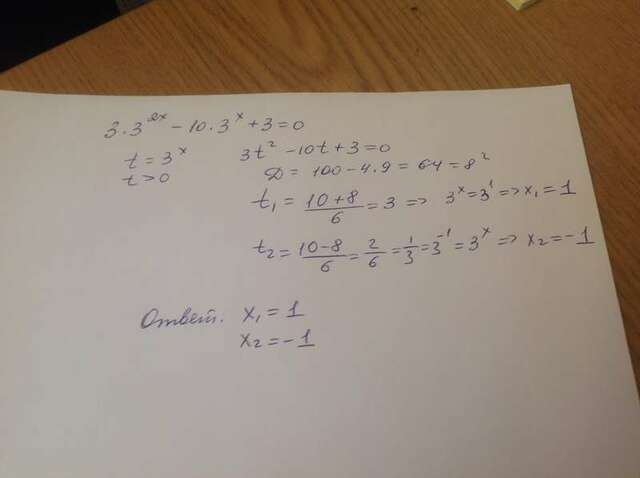 3·3^2x − 10·3^x + 3 = 0
t = 3^x 3t² − 10t + 3 = 0
t > 0 D = 100 − 4·9 = 64 = 8²
t₁ = (10+8)/6 = 3 => 3^x = 3^1 => x₁ = 1
t₂ = (10−8)/6 = 2/6 = 1/3 = 3^−1 = 3^x => x₂ = −1
Ответ. x₁ = 1
x₂ = −1